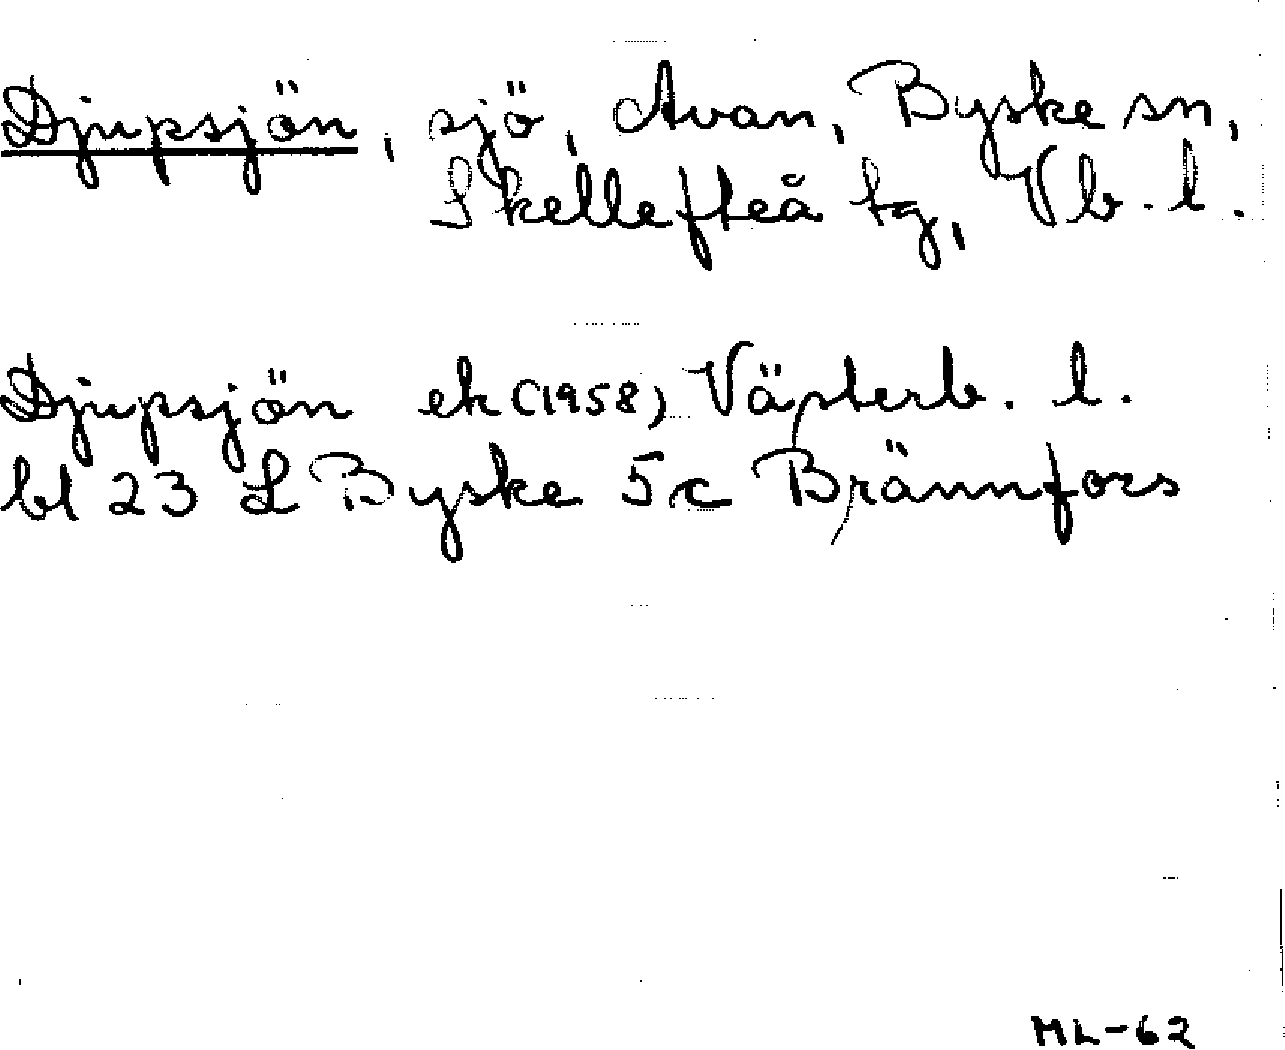 Djupsjön, sjö, Avan, Byske sn,
Skellefteå tg, Vb. l.
Djupsjön ek (1958) Västerb. l.
bl 23 L Byske 5c Brännfors
ML-62